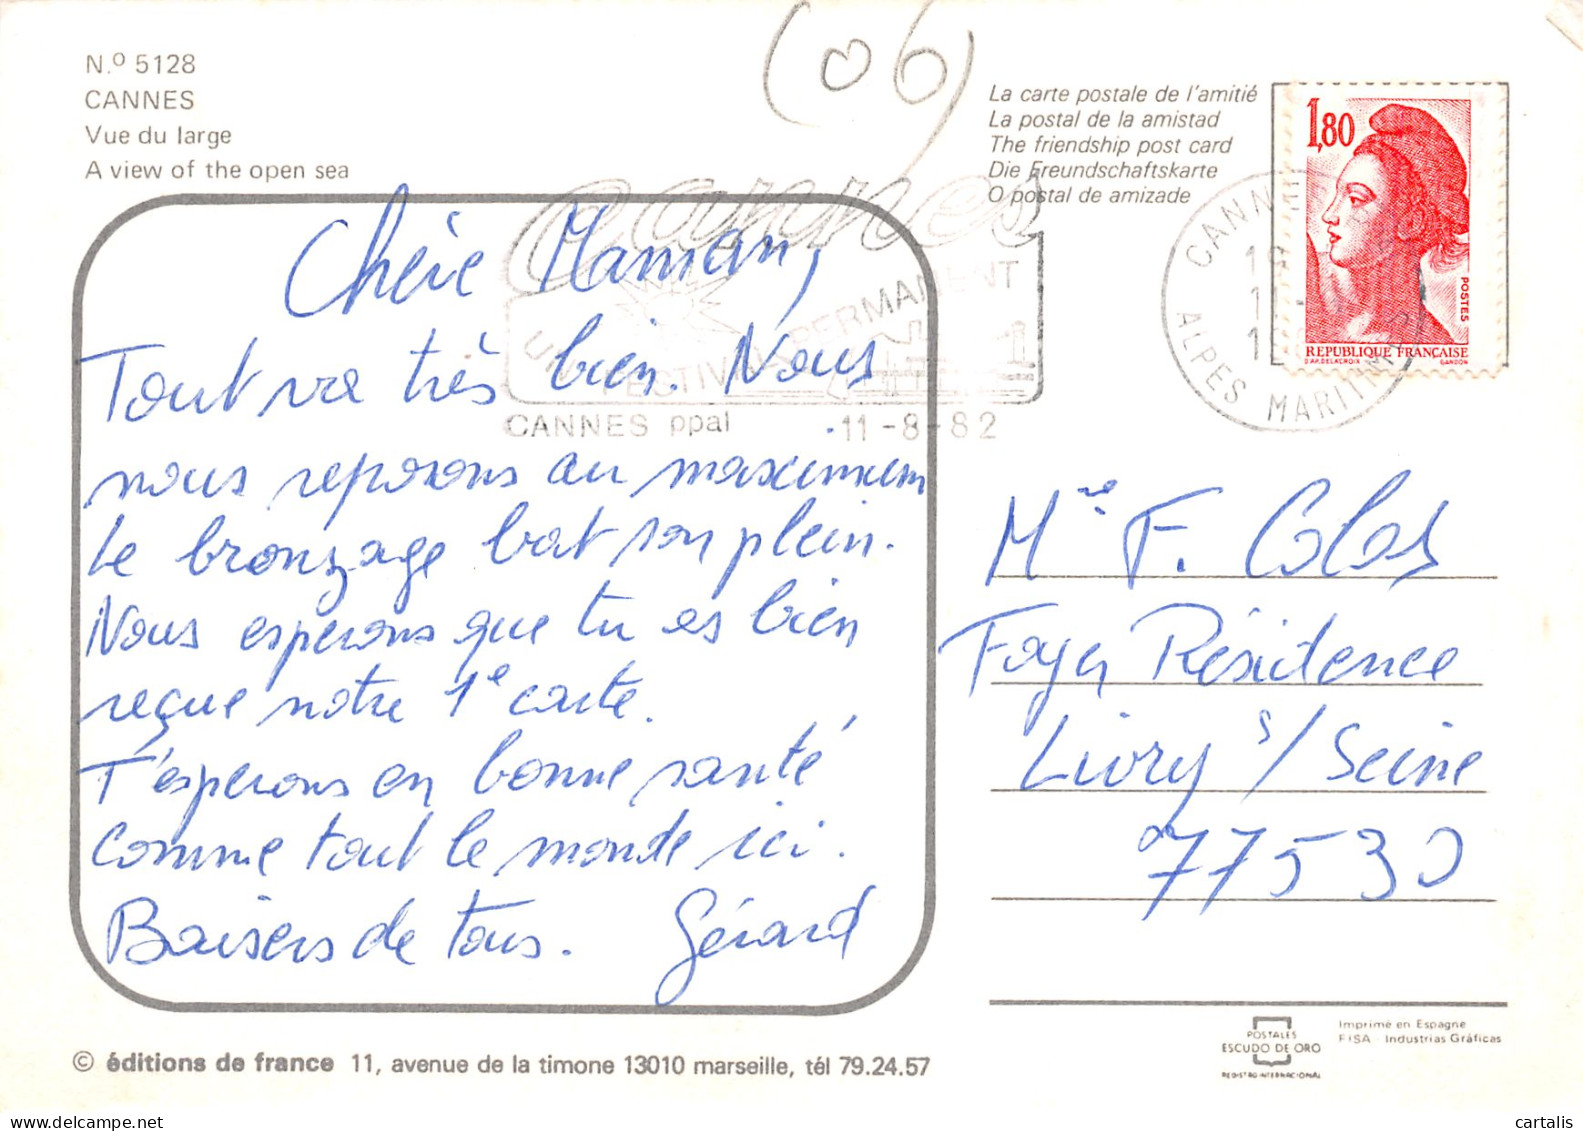 N.º 5128
CANNES
Vue du large
A view of the open sea
(06)
La carte postale de l'amitié
La postal de la amistad
The friendship post card
Die Freundschaftskarte
O postal de amizade
1,80
POSTES
REPUBLIQUE FRANÇAISE
D'AP. DELACROIX GANDON
Cannes
UN FESTIVAL PERMANENT
CANNES ppal 11-8-82
ALPES MARITIMES
Chère Maman,
Tout va très bien. Nous
nous reposons au maximum
Le bronzage bat son plein.
Nous esperons que tu as bien
reçue notre 1e carte.
T'esperons en bonne santé
comme tout le monde ici.
Baisers de tous. Gérard
Mme F. Colas
Foyer Résidence
Livry s/Seine
77530
© éditions de france 11, avenue de la timone 13010 marseille, tél 79.24.57
POSTALES
ESCUDO DE ORO
REGISTRO INTERNACIONAL
Imprimé en Espagne
FISA - Industrias Gráficas
cartalis